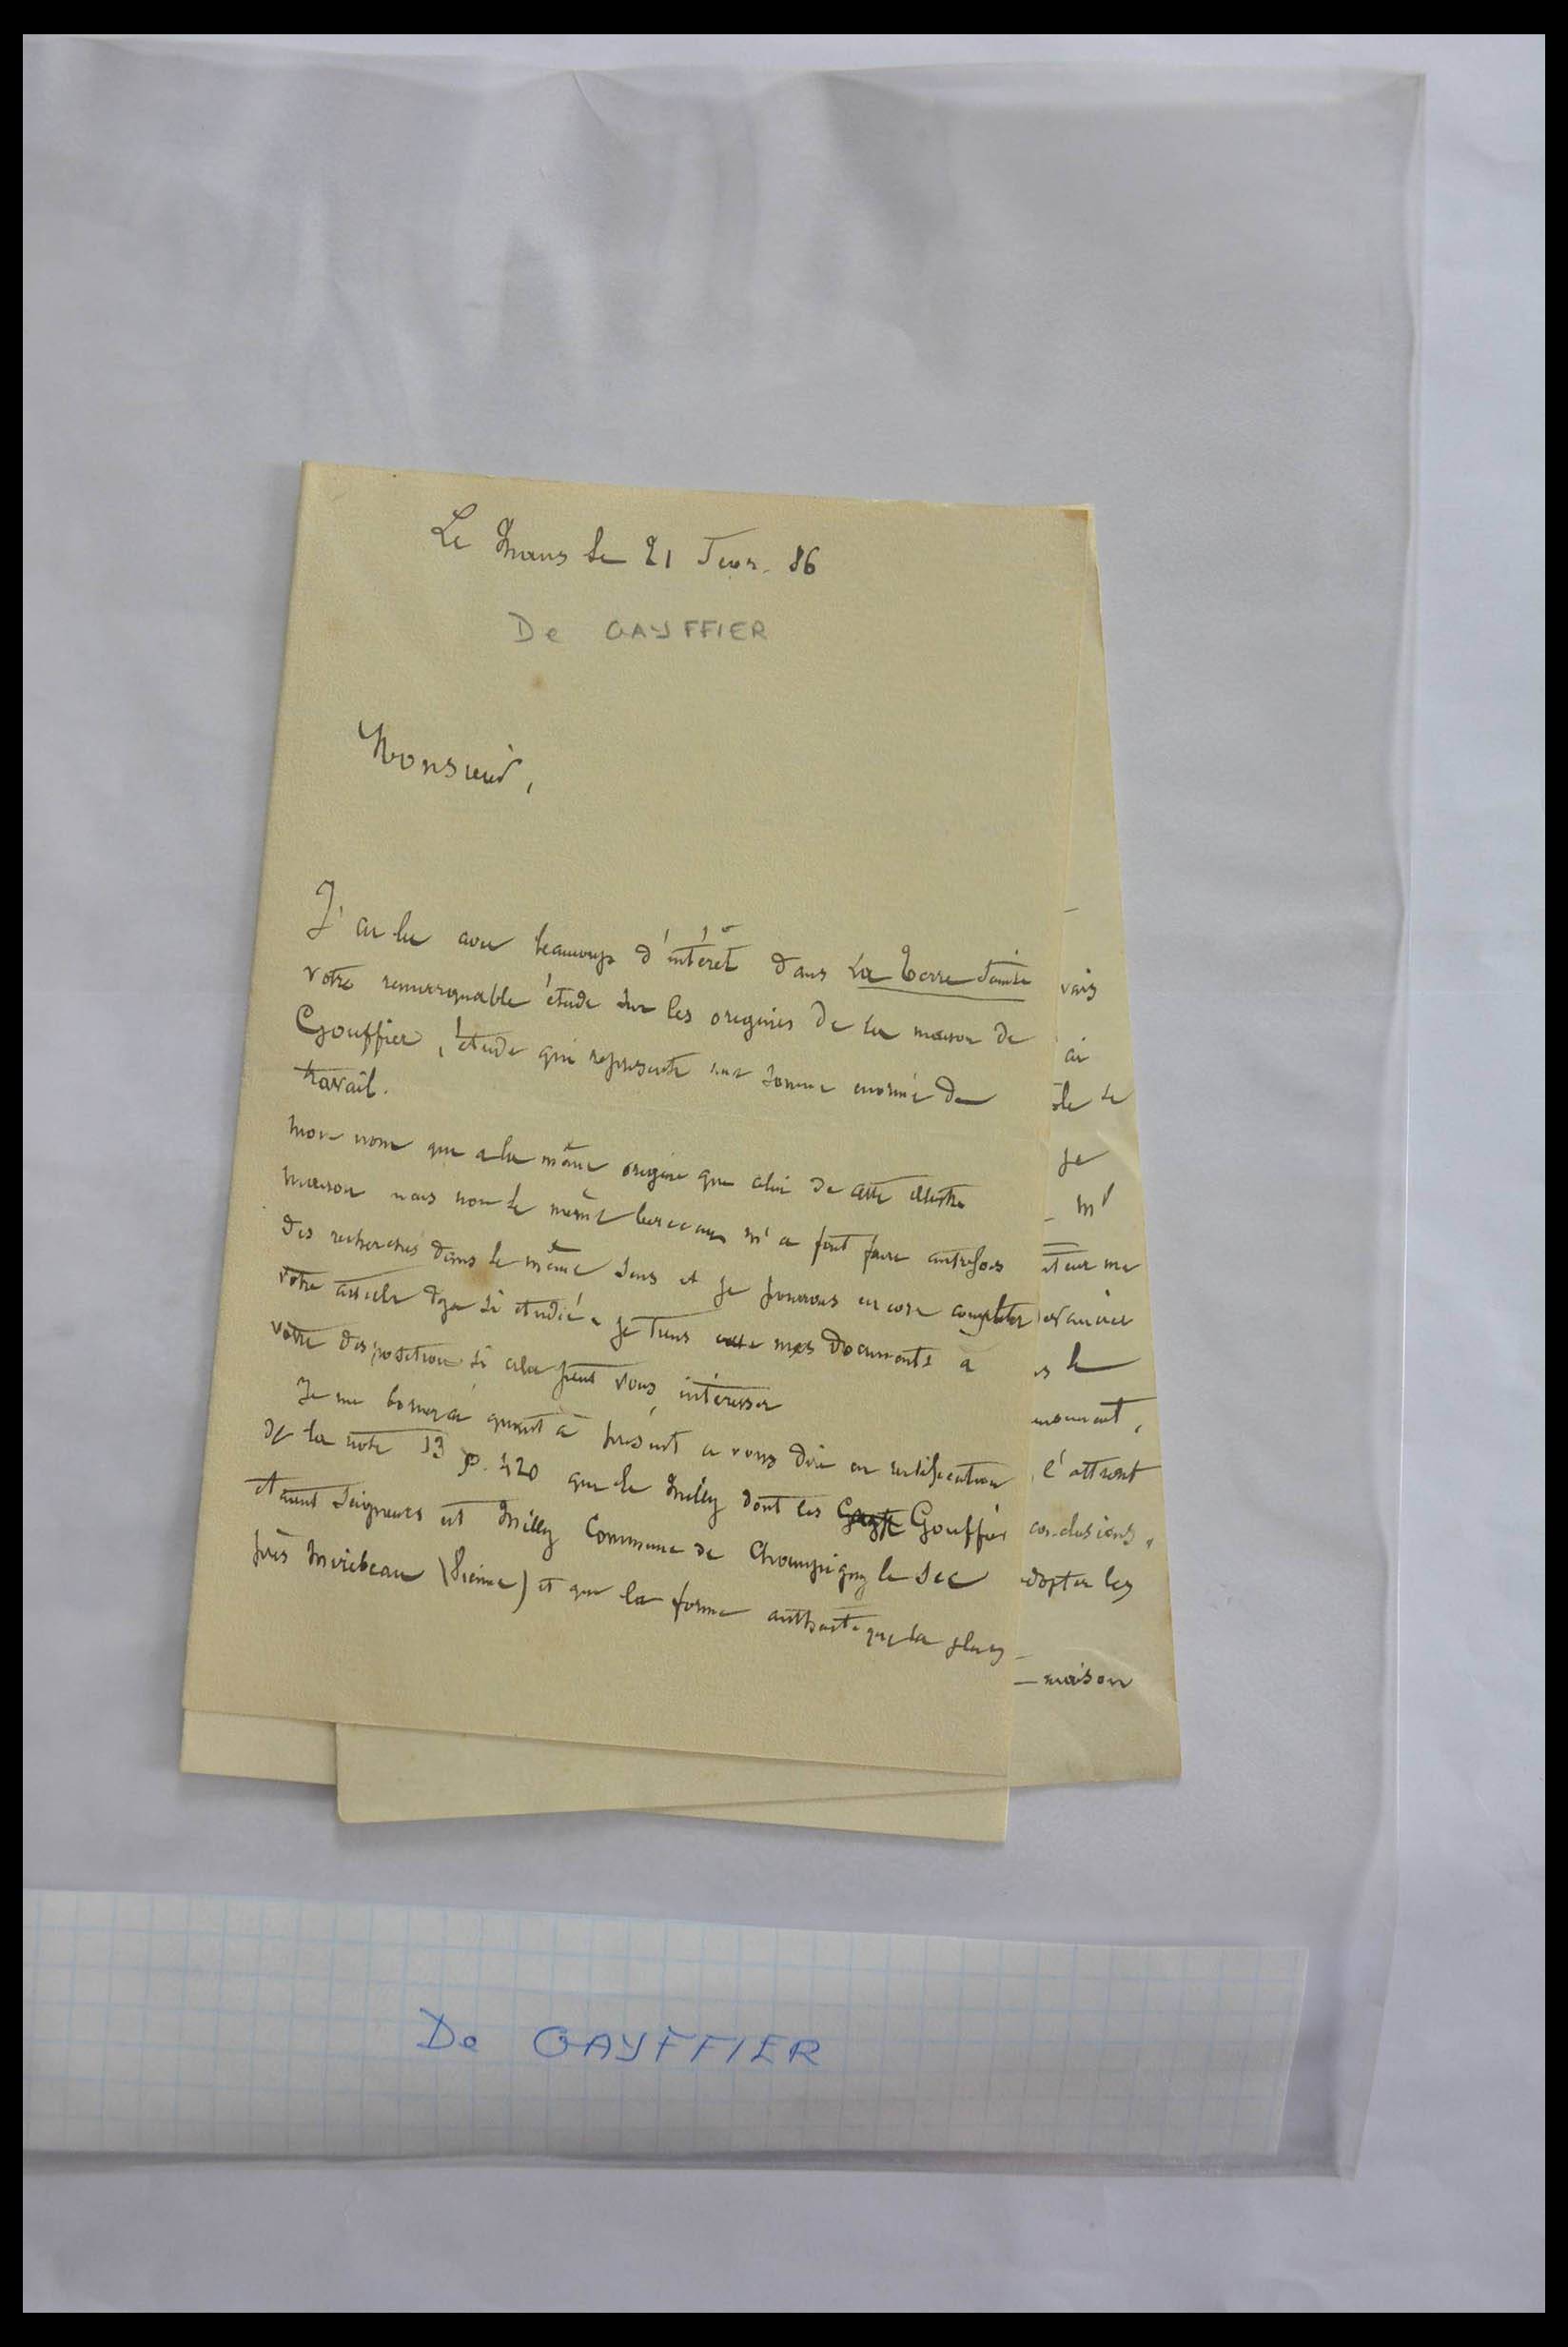 Le Mans le 21 Fevr. 86
De GAYFFIER
Monsieur,
J'ai lu avec beaucoup d'intérêt dans La Terre Sainte
votre remarquable étude sur les origines de la maison de
Gouffier, étude qui represente une somme enorme de
travail.
Mon nom qui a la même origine que celui de cette illustre
maison mais non le même berceau m'a fait faire autrefois
des recherches dans le même sens et je pourrais encore completer
votre article deja si etudié. je tiens mes documents à
votre disposition si cela peut vous intéresser
Je me bornerai quant à présent a vous dire en rectification
de la note 13 p. 420 que le Milly dont les Gouffier
etaient Seigneurs est Milly Commune de Champigny le Sec
près Mirebeau (Vienne) et que la forme authentique la plus
vais
ai
le
je
m'
et eur me
es le
l'attront
conclusions,
adopter les
maison
De GAYFFIER